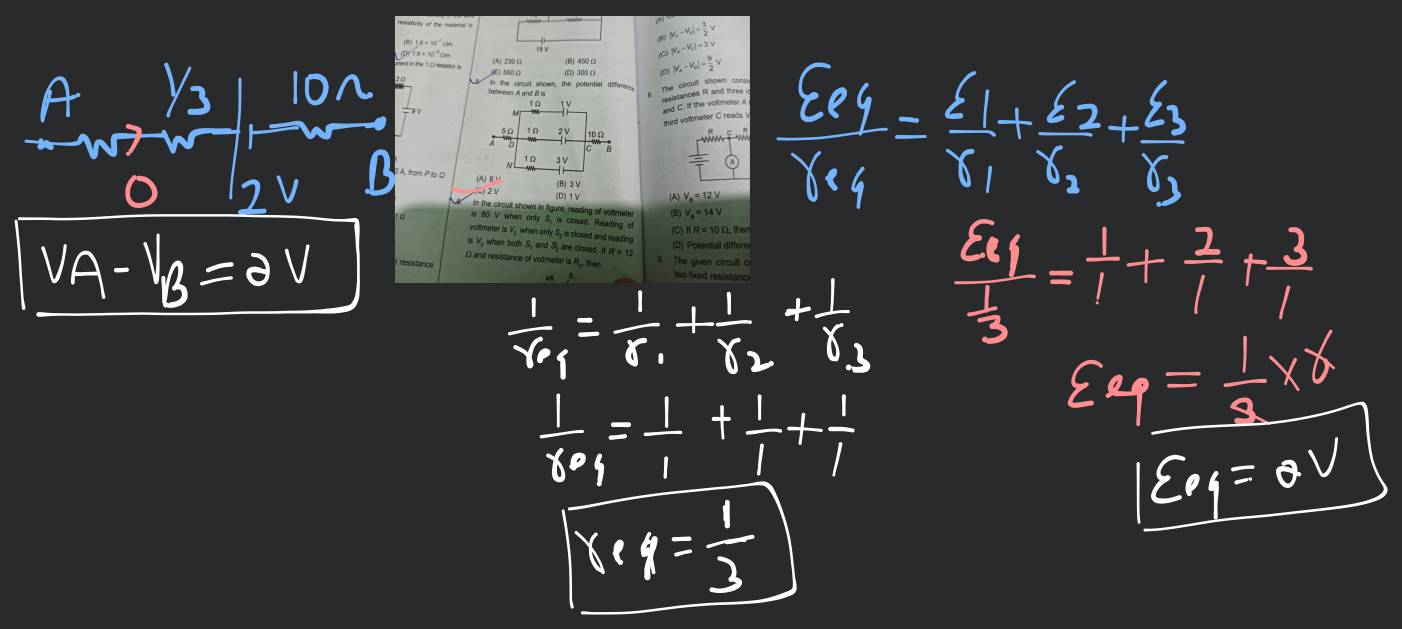 A
1/3
10Ω
0
2V
B
VA - VB = 2V
resistivity of the material is
(B) 1.6 × 10⁻⁷ Ωm
(D) 1.6 × 10⁻⁸ Ωm
rrent in the 1 Ω resistor is
2Ω
9 V
3 A, from P to Q
1Ω
resistance
18 V
(A) 230 Ω
(B) 450 Ω
(C) 550 Ω
(D) 300 Ω
In the circuit shown, the potential difference
between A and B is
1Ω
1 V
M
5Ω
1Ω
2 V
10Ω
A
D
C
B
1Ω
3 V
N
(A) 6 V
(B) 3 V
(C) 2 V
(D) 1 V
In the circuit shown in figure, reading of voltmeter
is 80 V when only S₁ is closed. Reading of
voltmeter is V₂ when only S₂ is closed and reading
is V₃ when both S₁ and S₂ are closed. If R = 12
Ω and resistance of voltmeter is Rᵥ, then
(D)
8. The circuit shown consi
resistances R and three i
and C. If the voltmeter A
third voltmeter C reads V
R
C
R
A
(B) V₈ = 14 V
(C) If R = 10 Ω, then
(D) Potential differe
9. The given circuit c
two fixed resistanc
Eeq/req = E1/r1 + E2/r2 + E3/r3
Eeq/(1/3) = 1/1 + 2/1 + 3/1
Eeq = 1/3 × 6
Eeq = 2V
1/req = 1/r1 + 1/r2 + 1/r3
1/req = 1/1 + 1/1 + 1/1
req = 1/3